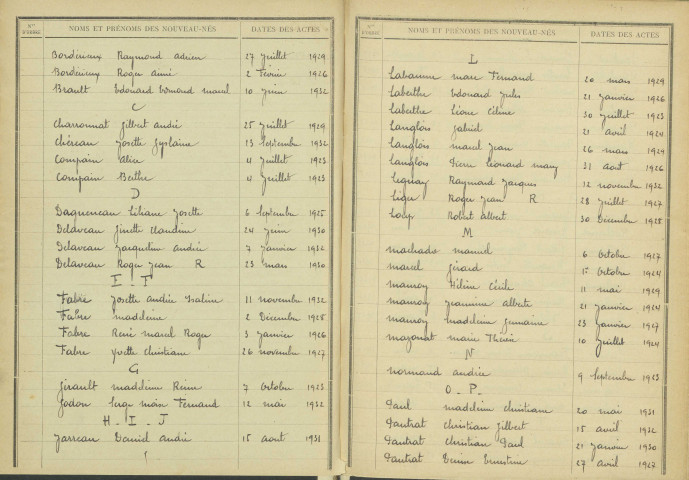 Nos D'ORDRE NOMS ET PRÉNOMS DES NOUVEAU-NÉS DATES DES ACTES
Bordérieux Raymond adrien 27 Juillet 1929
Bordérieux Roger aimé 2 Février 1926
Brault Edouard bernard marcel 10 Juin 1932
C
Charronnat Gilbert andré 25 Juillet 1929
Chéreau Josette Gyslaine 13 Septembre 1932
Compain Alice 4 Juillet 1923
Compain Berthe 4 Juillet 1923
D
Dagueneau Liliane Josette 6 Septembre 1925
Delaveau Ginette Claudine 24 Juin 1930
Delaveau Jacqueline andrée 7 Janvier 1932
Delaveau Roger Jean R 23 mars 1930
E - F
Fabre Josette andrée 11 novembre 1932
Fabre madeleine 2 Décembre 1928
Fabre René marcel Roger 3 Janvier 1926
Fabre Yvette Christiane 26 novembre 1927
G
Girault madeleine Reine 7 octobre 1923
Godon Serge Fernand 12 mai 1932
H - I - J
Jarreau Daniel andré 15 août 1931
Nos D'ORDRE NOMS ET PRÉNOMS DES NOUVEAU-NÉS DATES DES ACTES
L
Labaume marc Fernand 20 mars 1929
Laberthe Edouard Jules 21 Janvier 1926
Laberthe Céline 30 Juillet 1923
Langlois Gabriel 21 avril 1924
Langlois marcel Jean 26 mars 1924
Langlois Pierre Léonard 31 août 1926
Raymond Jacques 12 novembre 1932
Liger Roger Jean R 28 Juillet 1927
Loup Robert albert 30 Décembre 1928
M
machado manuel 6 octobre 1927
marcel Gérard 1er octobre 1924
Hélène Cécile 11 mai 1929
Jeannine alberte 21 Janvier 1924
madeleine Germaine 23 Janvier 1927
marie Thérèse 10 Juillet 1924
N
normand andrée 9 Septembre 1923
O - P
Paul madeleine christiane 20 mai 1931
Pautrat christian Gilbert 15 avril 1932
Pautrat christian Paul 21 Janvier 1930
Pautrat Denise Ernestine 27 avril 1927